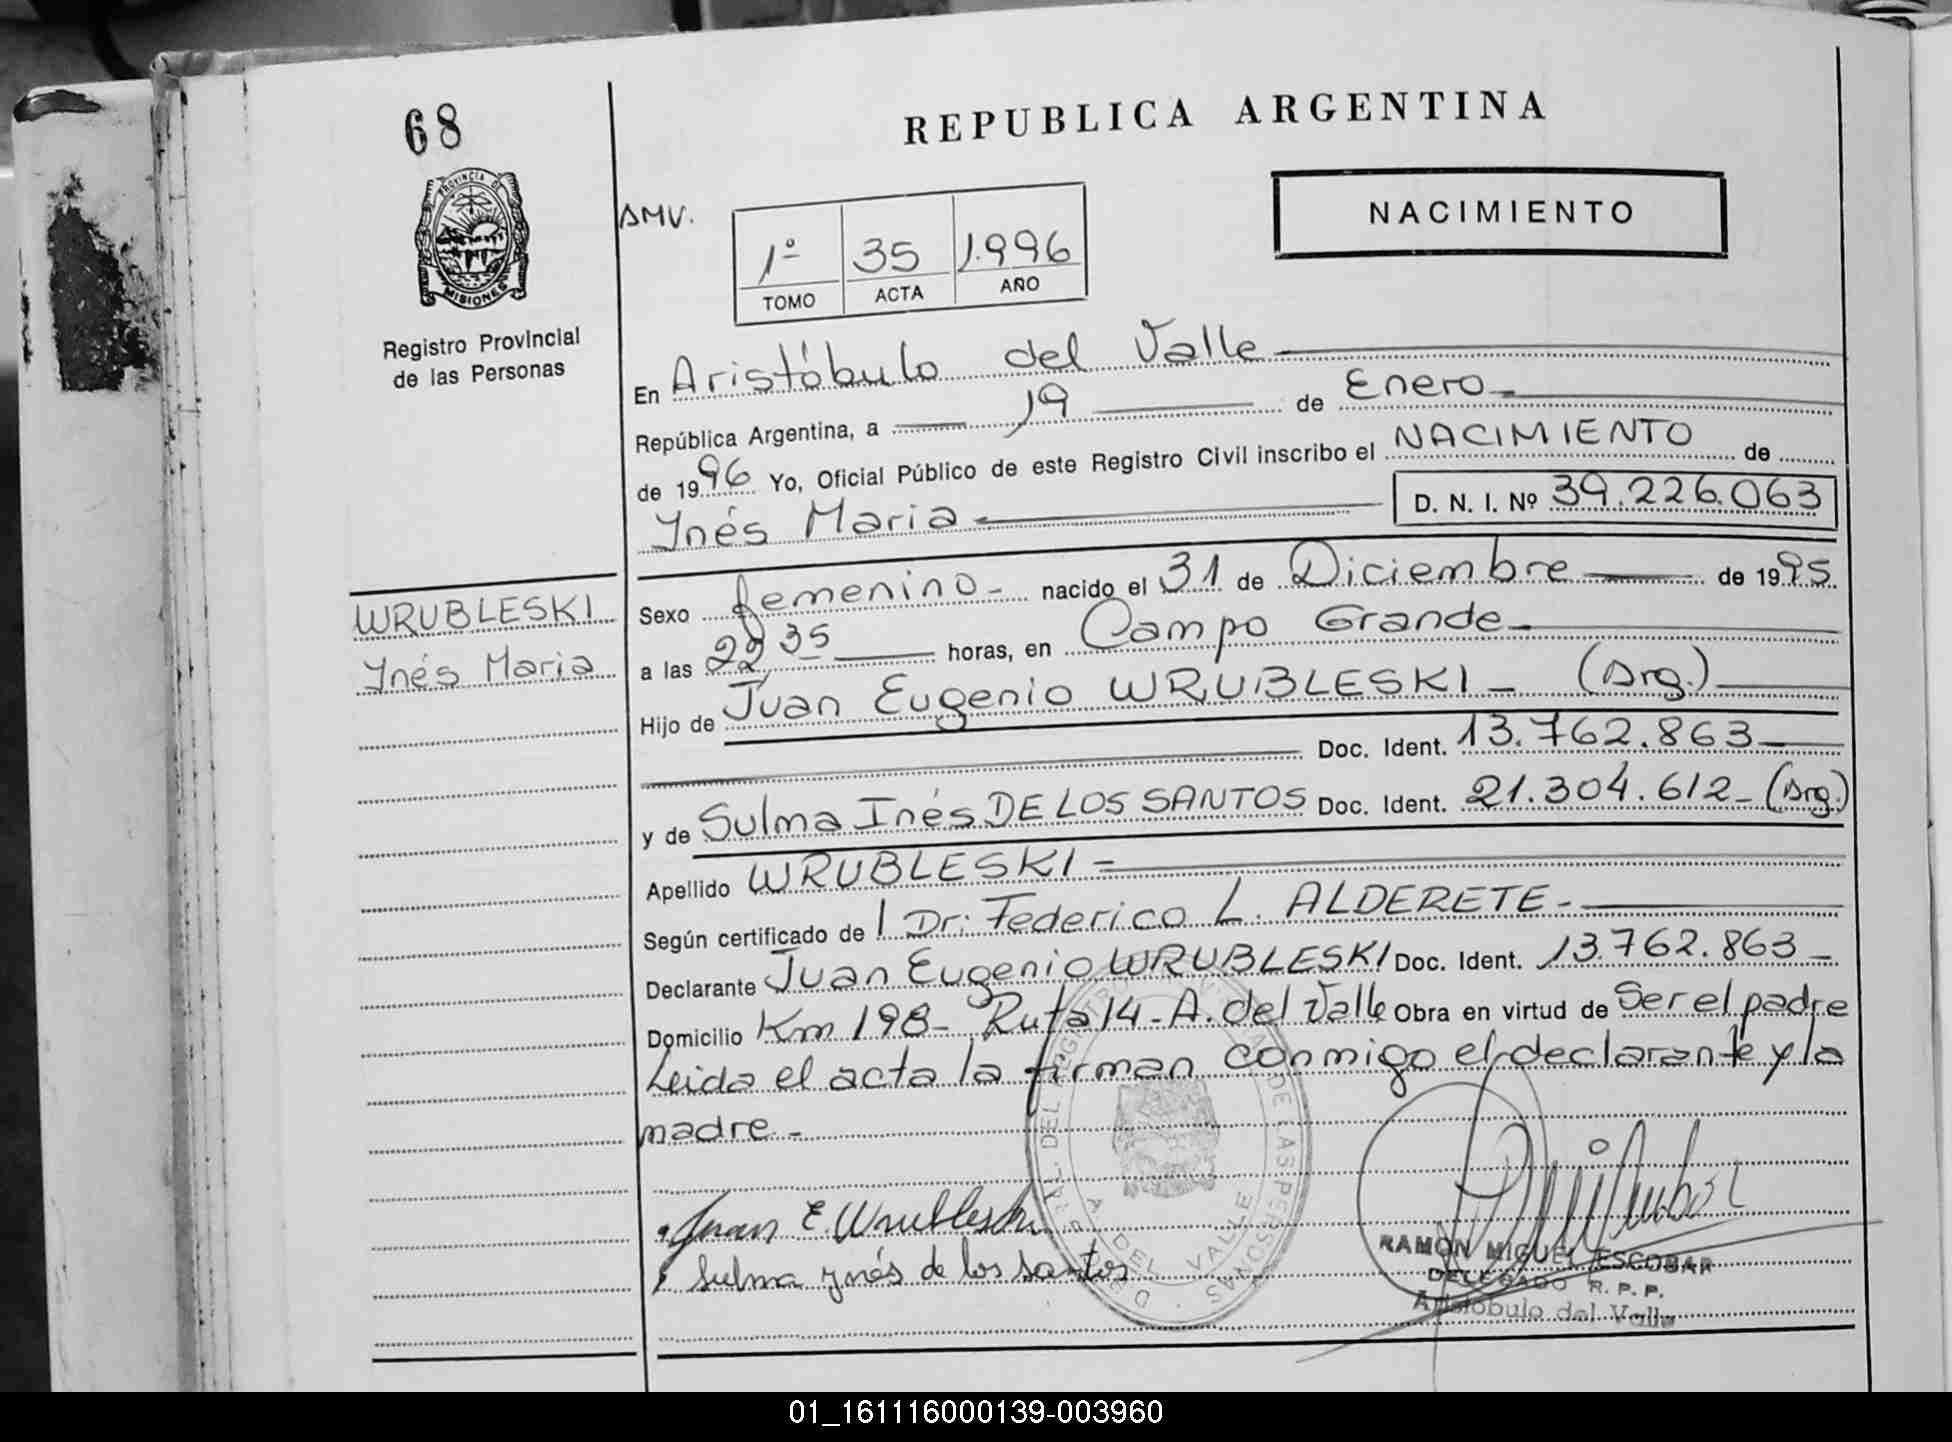 68
REPUBLICA ARGENTINA
PROVINCIA DE
MISIONES
Registro Provincial
de las Personas
AMV.
1º 35 1.996
TOMO ACTA AÑO
NACIMIENTO
En Aristóbulo del Valle
República Argentina, a 19 de Enero
de 1996 Yo, Oficial Público de este Registro Civil inscribo el NACIMIENTO de
Ynés Maria D. N. I. Nº 39.226.063
WRUBLESKI
Ynés Maria
Sexo femenino nacido el 31 de Diciembre de 1995
a las 22 35 horas, en Campo Grande
Hijo de Juan Eugenio WRUBLESKI (Arg.)
Doc. Ident. 13.762.863
y de Sulma Inés DE LOS SANTOS Doc. Ident. 21.304.612 (Arg.)
Apellido WRUBLESKI
Según certificado del Dr. Federico L. ALDERETE
Declarante Juan Eugenio WRUBLESKI Doc. Ident. 13.762.863
Domicilio Km 198 - Ruta 14 - A. del Valle Obra en virtud de Ser el padre
Leida el acta la firman conmigo el declarante y la
madre
Juan E. Wrubleski
Sulma ynés de los santos
A. DEL VALLE
RAMÓN MIGUEL ESCOBAR
DELEGADO R. P. P.
Aristóbulo del Valle
01_161116000139-003960